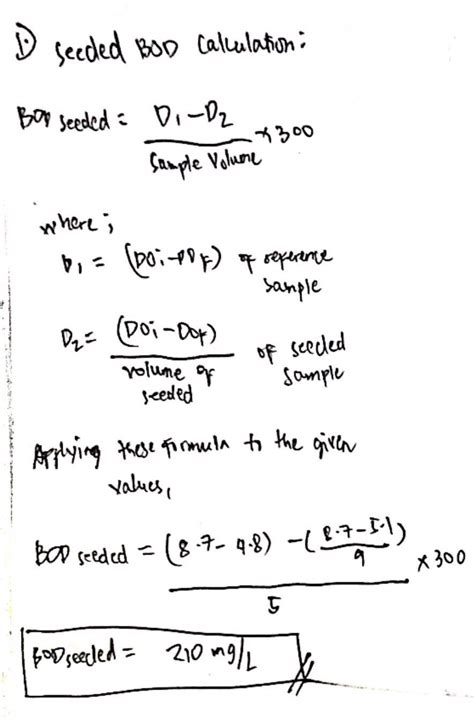 1) Seeded BOD Calculation:
BOD seeded = D1-D2
Sample Volume ×300
where;
D1 = (DOi-DOf) of reference
sample
D2 = (DOi-DOf)
volume of
seeded
of seeded
sample
Applying these formula to the given
values,
BOD seeded = (8.7-4.8) -(8.7-5.1)
9
×300
5
BOD seeded = 210 mg/L